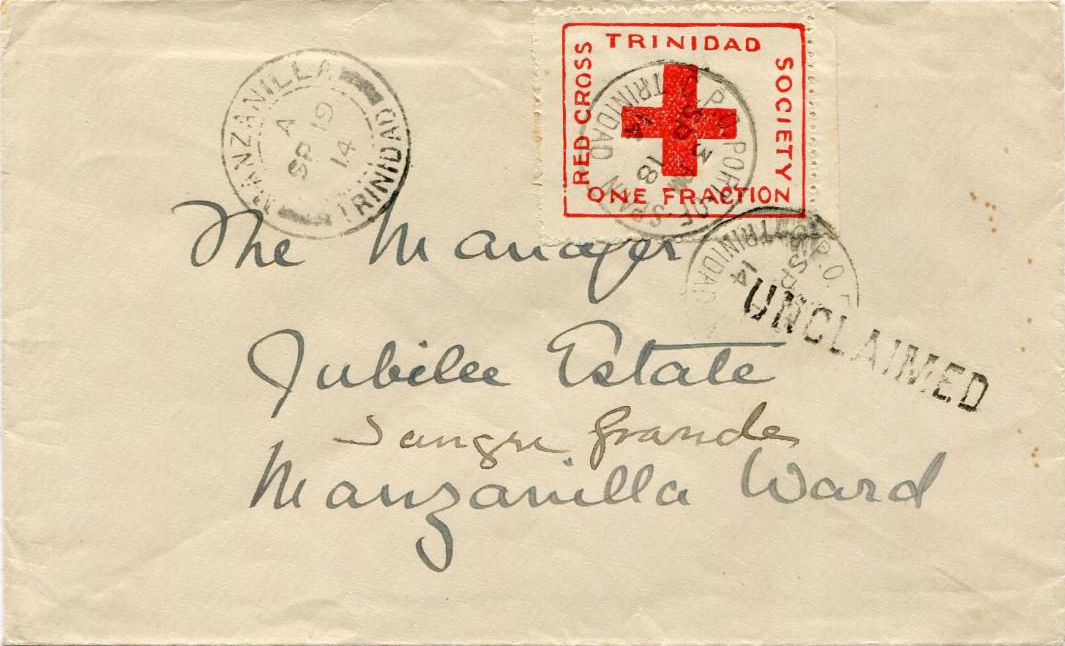 TRINIDAD
RED CROSS
SOCIETY
ONE FRACTION
MANZANILLA
A
SP 19
14
TRINIDAD
G.P.O. PORT-OF-SPAIN
SP 18
14
TRINIDAD
G.P.O.
SP
14
TRINIDAD
UNCLAIMED
The Manager
Jubilee Estate
Sangre Grande
Manzanilla Ward